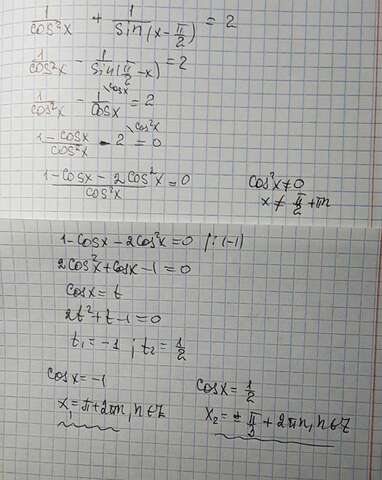 1/cos²x + 1/sin(x - π/2) = 2
1/cos²x - 1/sin(π/2 - x) = 2
1/cos²x - 1\cosx/cosx = 2
1-cosx/cos²x - 2\cos²x = 0
1-cosx - 2cos²x/cos²x = 0
cos²x ≠ 0
x ≠ π/2 + πn
1-cosx-2cos²x=0 /:(-1)
2cos²x+cosx-1=0
cosx=t
2t²+t-1=0
t₁=-1 ; t₂=1/2
cosx=-1
x₁=π+2πn, n∈Z
cosx=1/2
x₂=± π/3 + 2πn, n∈Z